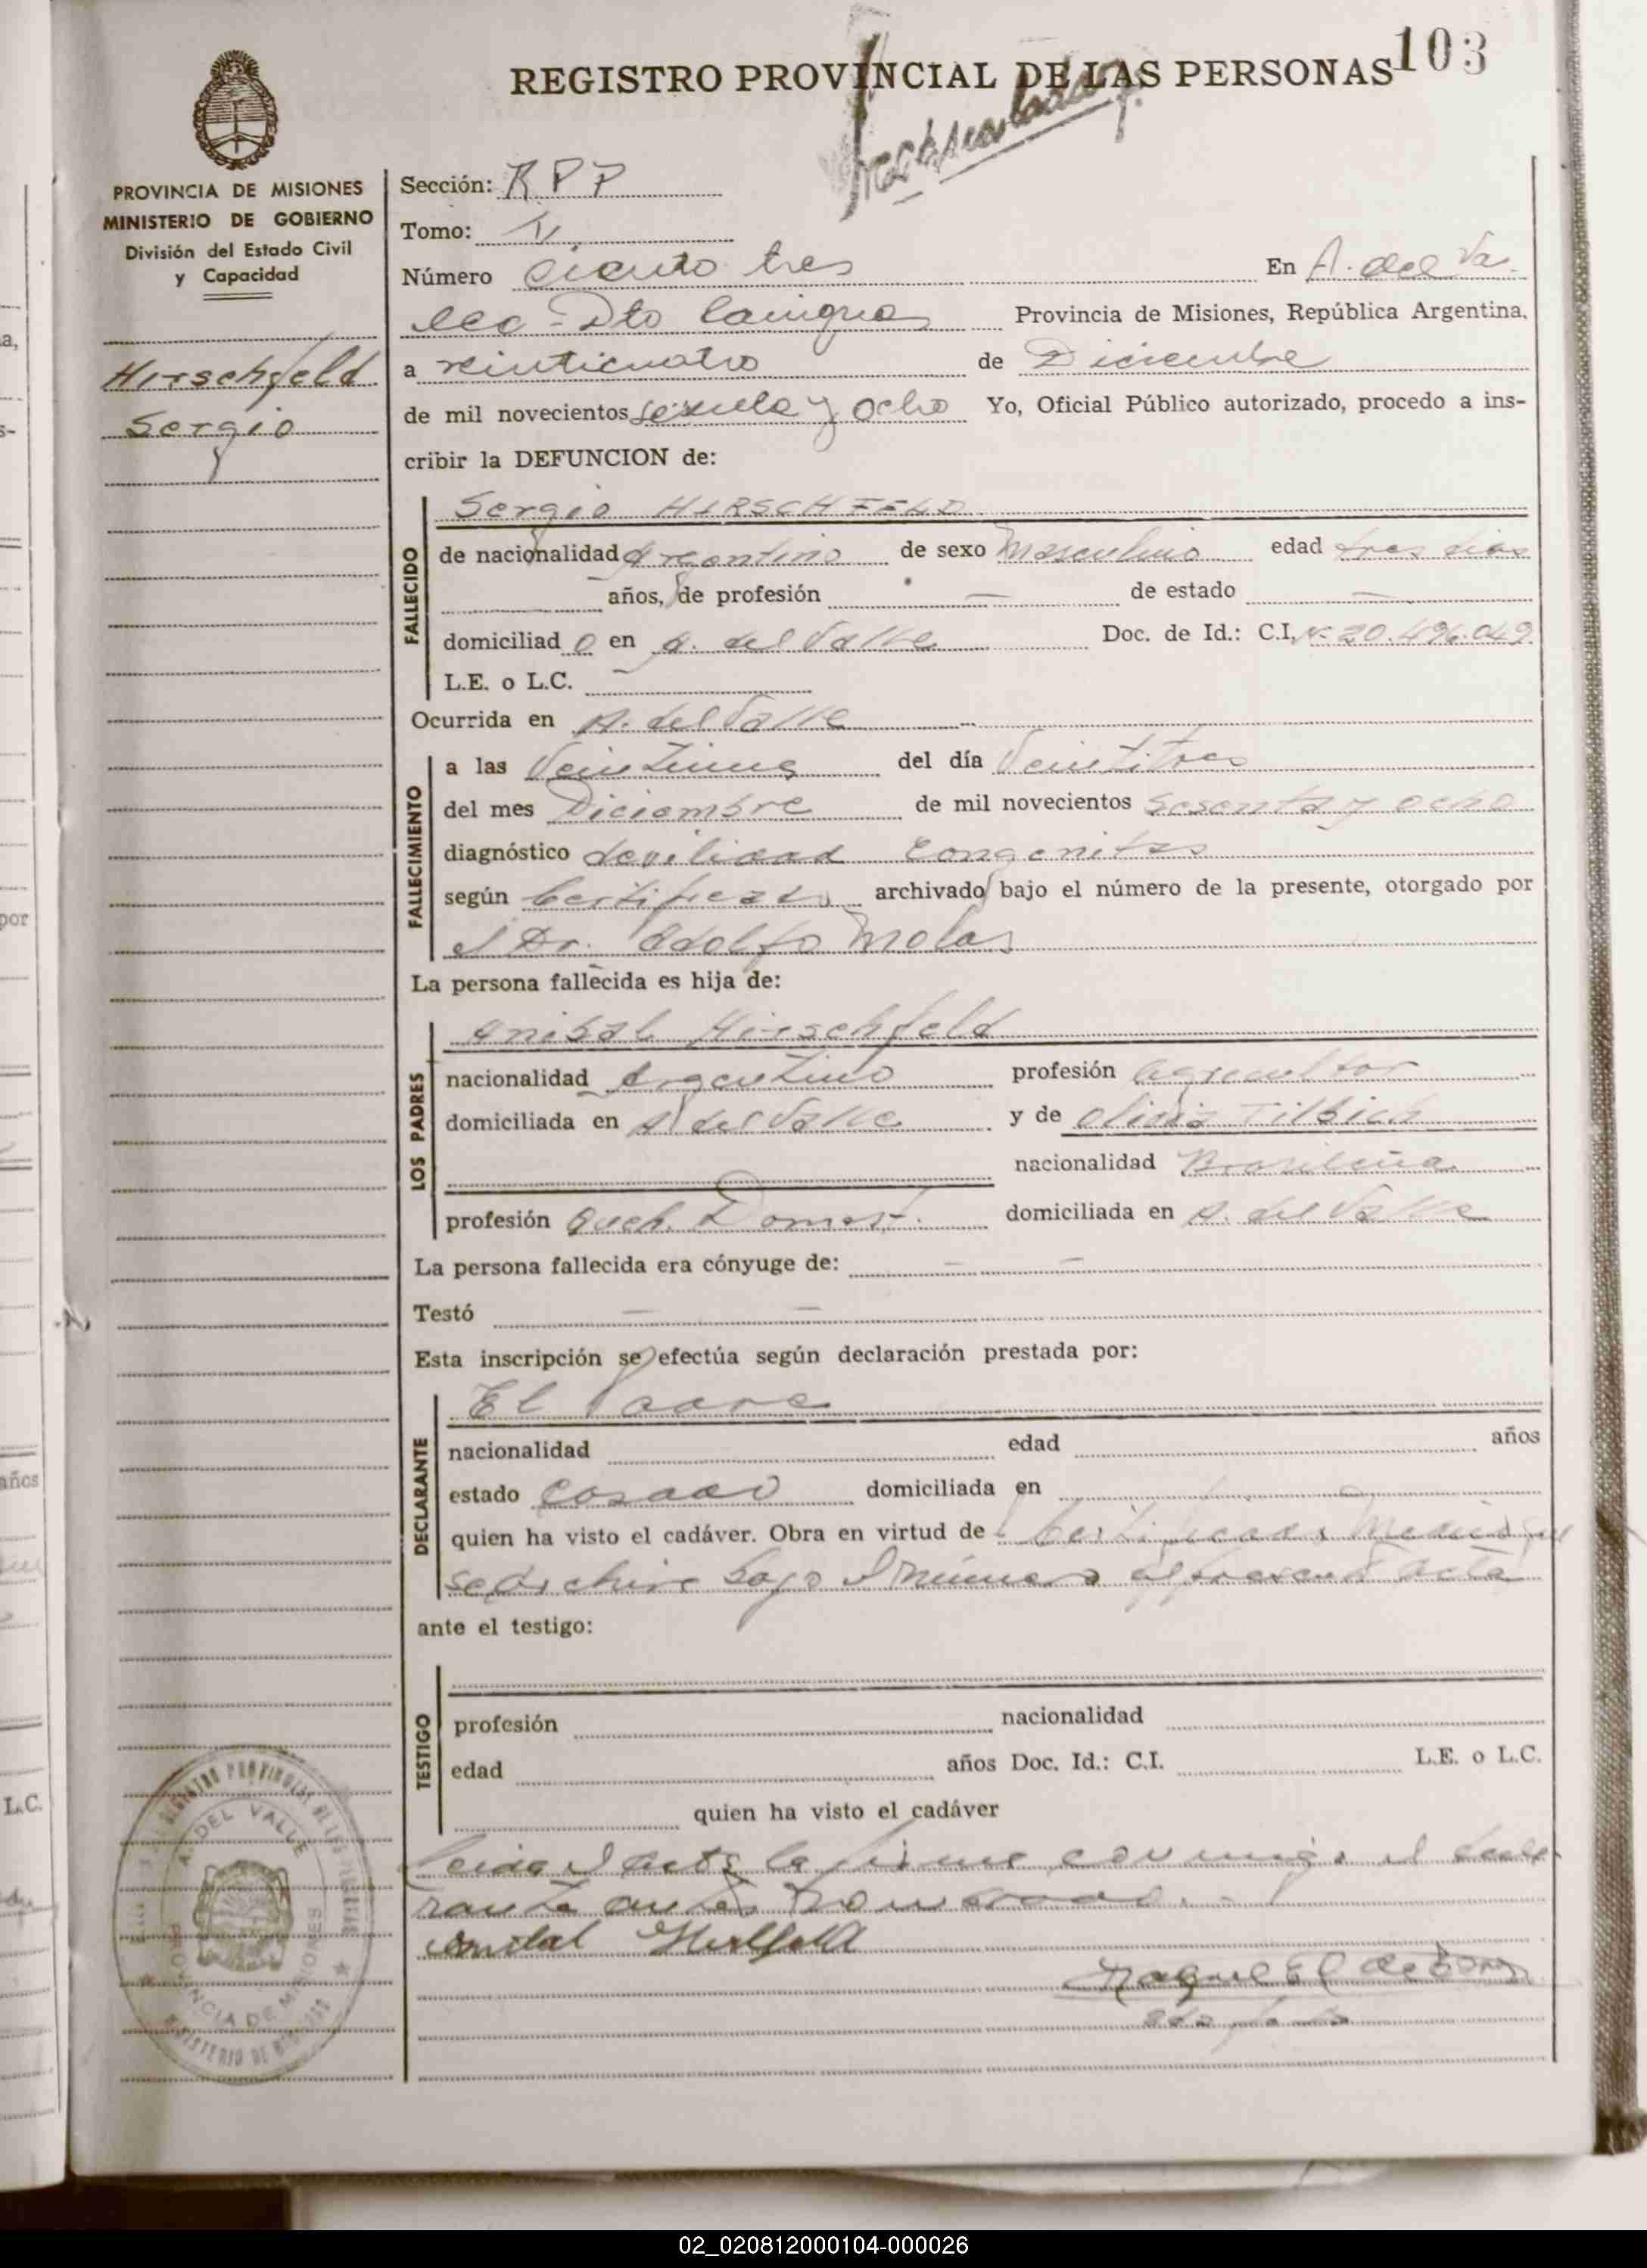 103
REGISTRO PROVINCIAL DE LAS PERSONAS
PROVINCIA DE MISIONES
MINISTERIO DE GOBIERNO
División del Estado Civil
y Capacidad
Hirschfeld
Sergio
Sección: RPP
Tomo:
Número ciento tres En A. del Va-
lle - Dto Cainguas Provincia de Misiones, República Argentina,
a veinticuatro de Diciembre
de mil novecientos sesenta y ocho Yo, Oficial Público autorizado, procedo a ins-
cribir la DEFUNCION de:
FALLECIDO
Sergio HIRSCHFELD
de nacionalidad Argentino de sexo Masculino edad tres dias
años, de profesión — de estado —
domiciliad o en A. del Valle Doc. de Id.: C.I. N° 20.496.049
L.E. o L.C.
Ocurrida en A. del Valle
FALLECIMIENTO
a las Veintiuna del día Veintitres
del mes Diciembre de mil novecientos sesenta y ocho
diagnóstico devilidad congenitas
según Certificado archivado bajo el número de la presente, otorgado por
el Dr. Adolfo Molas
La persona fallecida es hija de:
LOS PADRES
Anibal Hirschfeld
nacionalidad Argentino profesión agricultor
domiciliada en A. del Valle y de Olivia Tilbich
nacionalidad Brasileña
profesión Queh. Domest. domiciliada en A. del Valle
La persona fallecida era cónyuge de: — —
Testó — —
Esta inscripción se efectúa según declaración prestada por:
DECLARANTE
El Padre
nacionalidad edad años
estado casado domiciliada en
quien ha visto el cadáver. Obra en virtud de Certificado Medico que
se archiva bajo el número del presente acta
ante el testigo:
TESTIGO
profesión nacionalidad
edad años Doc. Id.: C.I. L.E. o L.C.
quien ha visto el cadáver
Leida el acta la firma conmigo el decla
rante antes nombrado.-
Anibal
Raquel
REGISTRO PROVINCIAL DE LAS PERSONAS
A. DEL VALLE
PROVINCIA DE MISIONES
MINISTERIO DE GOBIERNO
a,
s-
por
años
L.C.
02_020812000104-000026